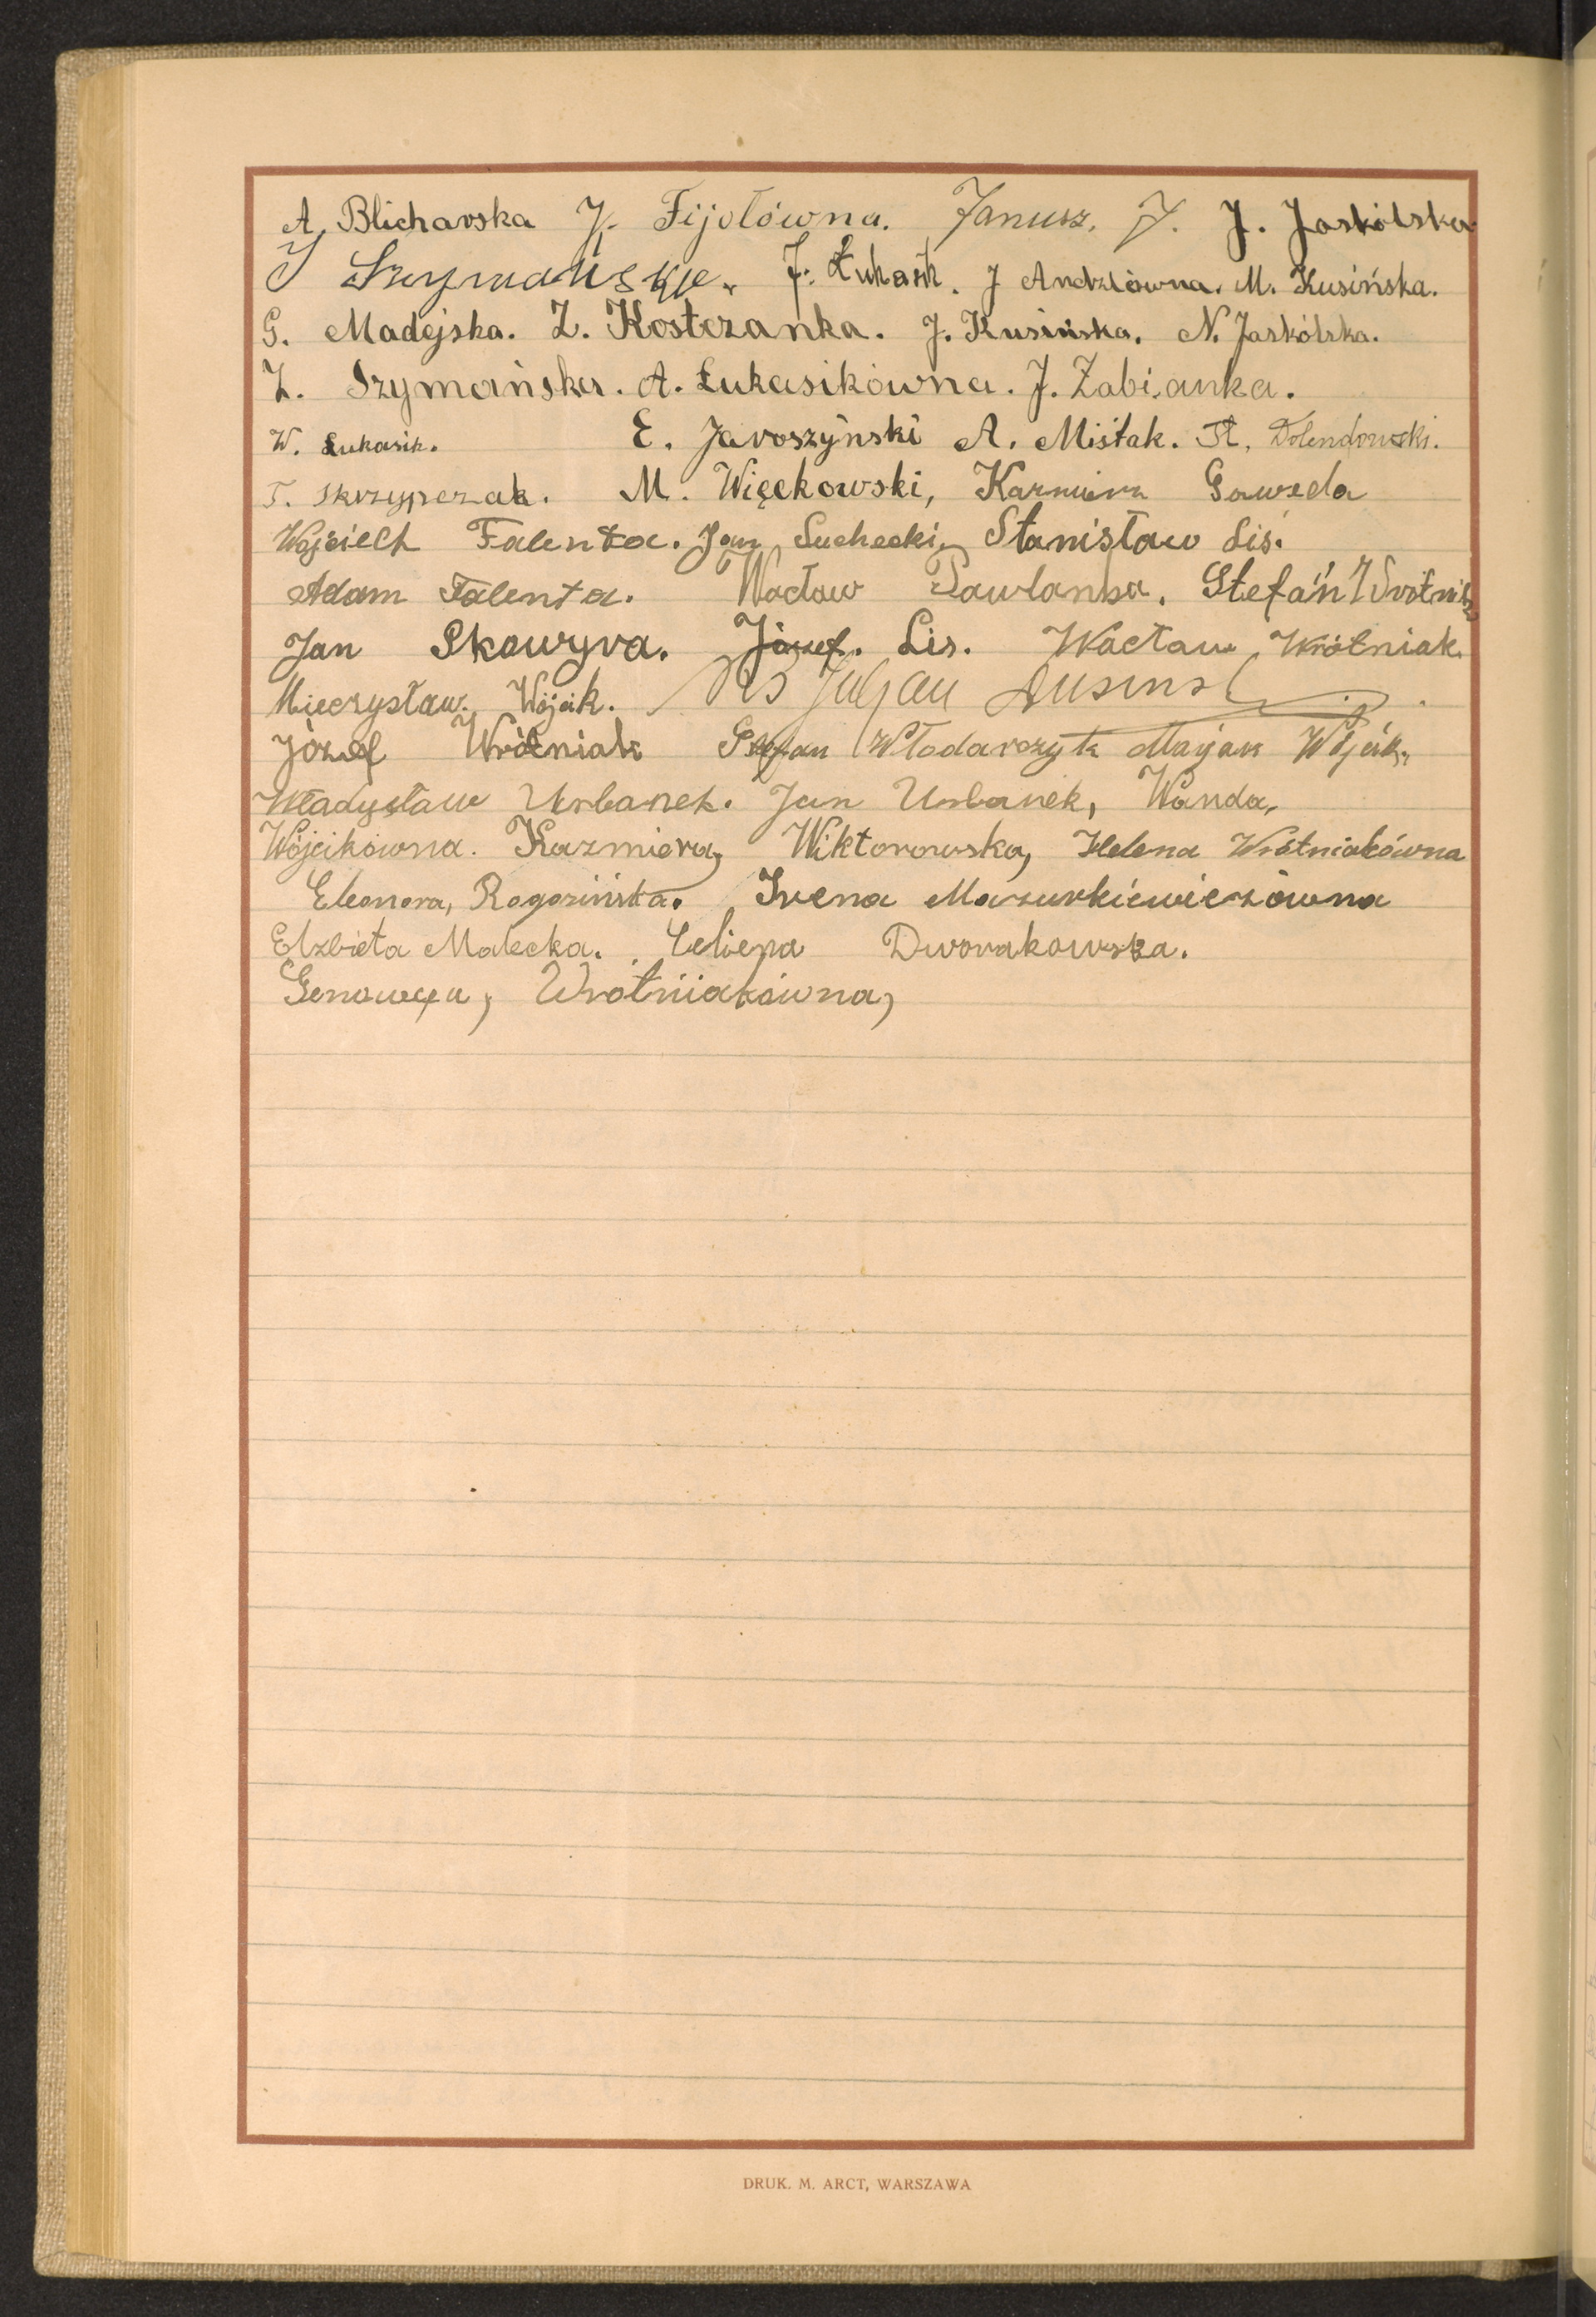 A. Blicharska J. Fijołówna. Janusz. J. J. Jaskólska
J Szymańskje. J. Łukasik. J Andziówna. M. Kusińska.
G. Madejska. Z. Kostrzanka. J. Kusińska. N. Jaskólska.
Z. Szymańska. A. Łukasikówna. J. Żabianka.
W. Łukasik. E. Jaroszyński A. Miśtak. St. Dolendowski.
T. Skrzypczak. M. Więckowski, Kazmierz Gawęda
Wojciech Falenta. Jan Suchecki, Stanisław Lis.
Adam Falenta. Wacław Pawlanka. Stefan Wrótniak
Jan Skowyra. Józef. Lis. Wacław Wrótniak.
Mieczysław. Wójcik. Juljan
Józef Wrótniak Stefan Włodarczyk Marjan Wójcik.
Władysław Urbanek. Jan Urbanek, Wanda,
Wójcikówna. Kazmiera, Wiktorowska, Helena Wrótniakówna
Eleonora, Rogozińska. Irena Mazurkiewiczówna
Elzbieta Malecka. Celiena Dworakowska.
Genowefa, Wrótniiakówna,
DRUK. M. ARCT, WARSZAWA